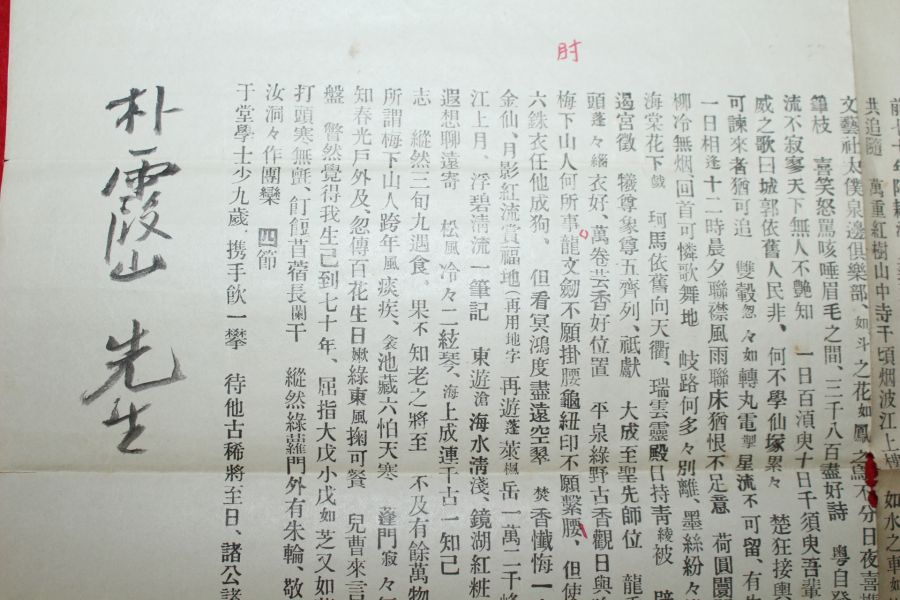 共追隨　萬重紅樹山中寺千頃烟波江上
文藝社太僕泉邊俱樂部、如斗之花如鳳之鳥不分日夜喜
筆枝　喜笑怒罵咳唾眉毛之間、三千八百盡好詩　粵自
流不寂寥天下無人不艶知　一日百須臾十日千須臾吾輩
威之歌曰城郭依舊人民非、何不學仙塚累々　楚狂接輿
可諫來者猶可追　雙轂忽々如轉丸電掣星流不可留、有
一日相逢十二時晨夕聯襟風雨聯床猶恨不足意　荷圓
柳冷無烟、回首可憐歌舞地　岐路何多々別離、墨絲紛々
海棠花下　珂馬依舊向天衢、瑞雲靈殿日持靑綾被
遏宮徵　犧尊象尊五齊列、祇獻　大成至聖先師位　龍
頭蓬々緇衣好、萬卷芸香好位置　平泉綠野古香觀日與
梅下山人何所事龍文劒不願掛腰龜紐印不願繫腰、但使
肘
六銖衣任他成狗、但看冥鴻度盡遠空翠　焚香懺悔一
金仙、月影紅流賞福地(再用地字　再遊蓬萊楓岳一萬二千峰
江上月、浮碧淸流一筆記　東遊滄海水淸淺、鏡湖紅粧
遐想聊遠寄　松風冷々二絃琴、海上成連千古一知己
志　縱然三旬九遇食、果不知老之將至　不及有餘萬物
所謂梅下山人跨年風痰疾、金池藏六怕天寒　蓬門寂々
知春光戶外及、忽傳百花生日嫩綠東風掬可餐　兒曹來言
盤　瞥然覺得我生已到七十年、屈指大戊小戊如芝又如
打頭寒無氈、飣餖苜蓿長闌干　縱然綠蘿門外有朱輪、敬
汝洞々作團欒　四節
于堂學士少九歲、携手飮一攀　待他古稀將至日、諸公諸
朴霞山 先生